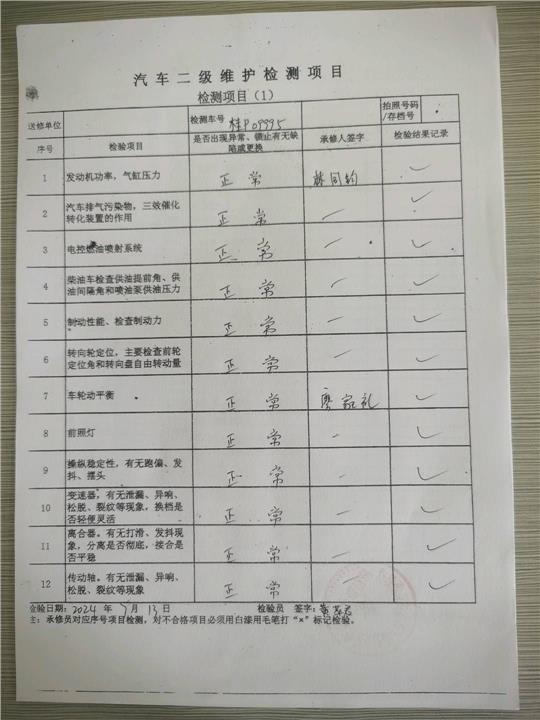 汽车二级维护检测项目
检测项目(1)
送修单位 检测车号 桂P09995 拍照号码/存档号
序号 检验项目 是否出现异常、锁止有无缺陷或更换 承修人签字 检验结果记录
1 发动机功率,气缸压力 正常 ✓
2 汽车排气污染物,三效催化转化装置的作用 正常 — ✓
3 电控燃油喷射系统 正常 — ✓
4 柴油车检查供油提前角、供油间隔角和喷油泵供油压力 正常 — ✓
5 制动性能、检查制动力 正常 — ✓
6 转向轮定位,主要检查前轮定位角和转向盘自由转动量 正常 — ✓
7 车轮动平衡 正常 廖家礼 ✓
8 前照灯 正常 — ✓
9 操纵稳定性,有无跑偏、发抖、摆头 正常 — ✓
10 变速器。有无泄漏、异响、松脱、裂纹等现象,换档是否轻便灵活 正常 — ✓
11 离合器。有无打滑、发抖现象,分离是否彻底,接合是否平稳 正常 — ✓
12 传动轴。有无泄漏、异响、松脱、裂纹等现象 正常 — ✓
验日期:2024年7月13日 检验员 签字:
主:承修员对应序号项目检测,对不合格项目必须用白漆用毛笔打“×”标记检验。